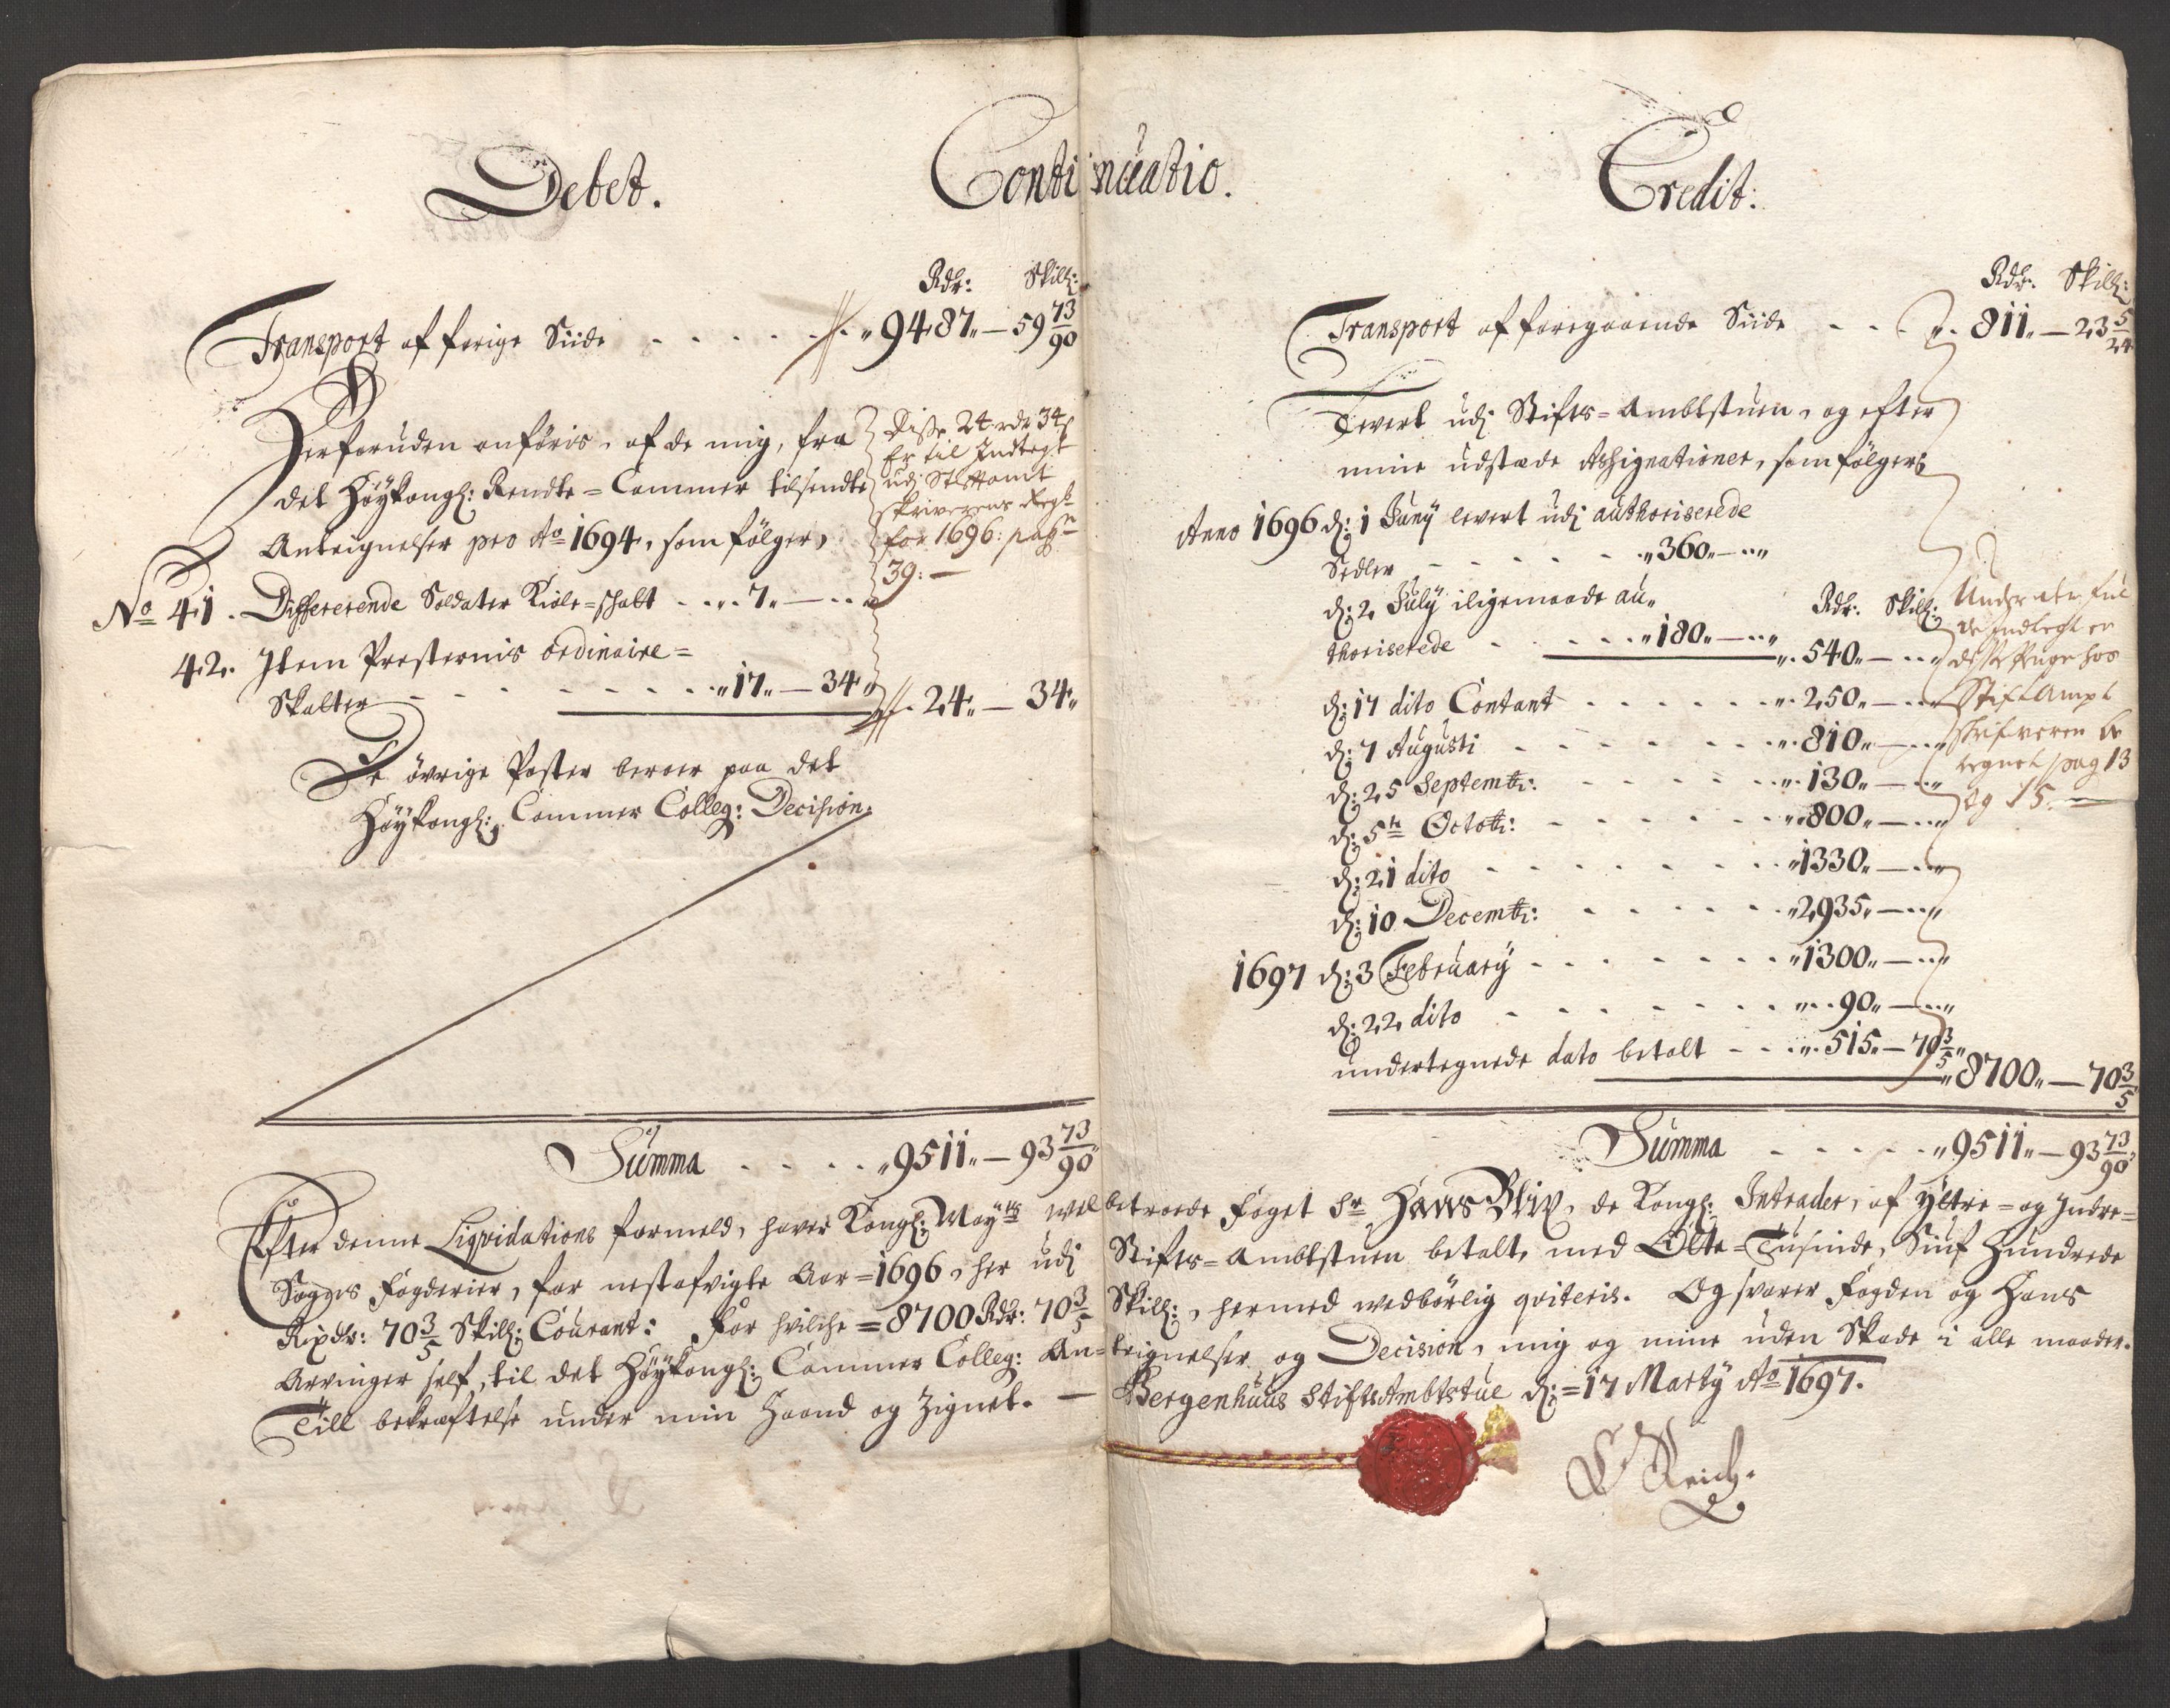 Debet.
Rdr: Skill:
Transport af forige Siide - - - - - 9487 — 59 73/90
Herforuden anføris, af de mig, fra
det Høykongl: Rendte=Cammer tilsendte
Anteignelser pro Ao 1694, som følger,
No 41. Differerende Soldater Kiole=schatt - - - 7 —
42. Item Presternis ordinaire=
Skatter - - - - - - - 17 — 34
24 — 34
Disse 24 rdr 34
Er til Indtegt
udj Stiftamt
skriverens Regn
for 1696: pag
39: —
De øvrige Poster beroer paa det
Høykongl: Cammer Colleg: Decision.
Summa - - - - 9511 — 93 73/90
Continuatio.
Credit:
Rdr: Skill:
Transport af foregaaende Siide - - - 811 — 23 5/24
Levert udj Stifts=Ambtstuen, og efter
mine udstæde Assignationer, som følger
Anno 1696 d: 1 Juny levert udj authoriserede
Sedler - - - - - 360 —
d: 2 July iligemaade au-
thoriserede - - - - - 180 —
Rdr: Skill:
540 —
d: 17 dito Contant - - - - - - 250 —
d: 7 Augusti - - - - - - - 810 —
d: 25 Septembr: - - - - - - 130 —
d: 5te Octobr: - - - - - - 800 —
d: 21 dito - - - - - - - 1330 —
d: 10 Decembr: - - - - - - 2935 —
1697 d: 3 February - - - - - - - 1300 —
d: 22 dito - - - - - - - - 90 —
undertegnede dato betalt - - - 515 — 70 3/5
8700 — 70 3/5
disse penge hos
StiftAmpt
skrifveren be
regnet pag 13
og 15. —
Summa - - - - - 9511 — 93 73/90
Efter denne Liqvidations formeld, haver Kongl: Mayts velbetroede Foget Sr Hans Blix, de Kongl: Intrader, af Yttre=og Indre=
Sogns Fogderier, for nestafvigte Aar=1696, her udj Stifts=Ambtstuen betalt, med Otte=Tusinde, Siuf Hundrede
Rixdr: 70 3/5 Skill: Courant: For hvilche=8700 Rdr: 70 3/5 Skill:, hermed vedbørlig qviteris. Og svarer Fogden og Hans
Arvinger self, til det Høykongl: Cammer Colleg: Anteignelser og Decision, mig og mine uden Skade i alle maader.
Till bekræftelse under min Haand og Zignet. — Bergenhuus StiftsAmbtstue d:=17 Marty Ao 1697.
Reich.